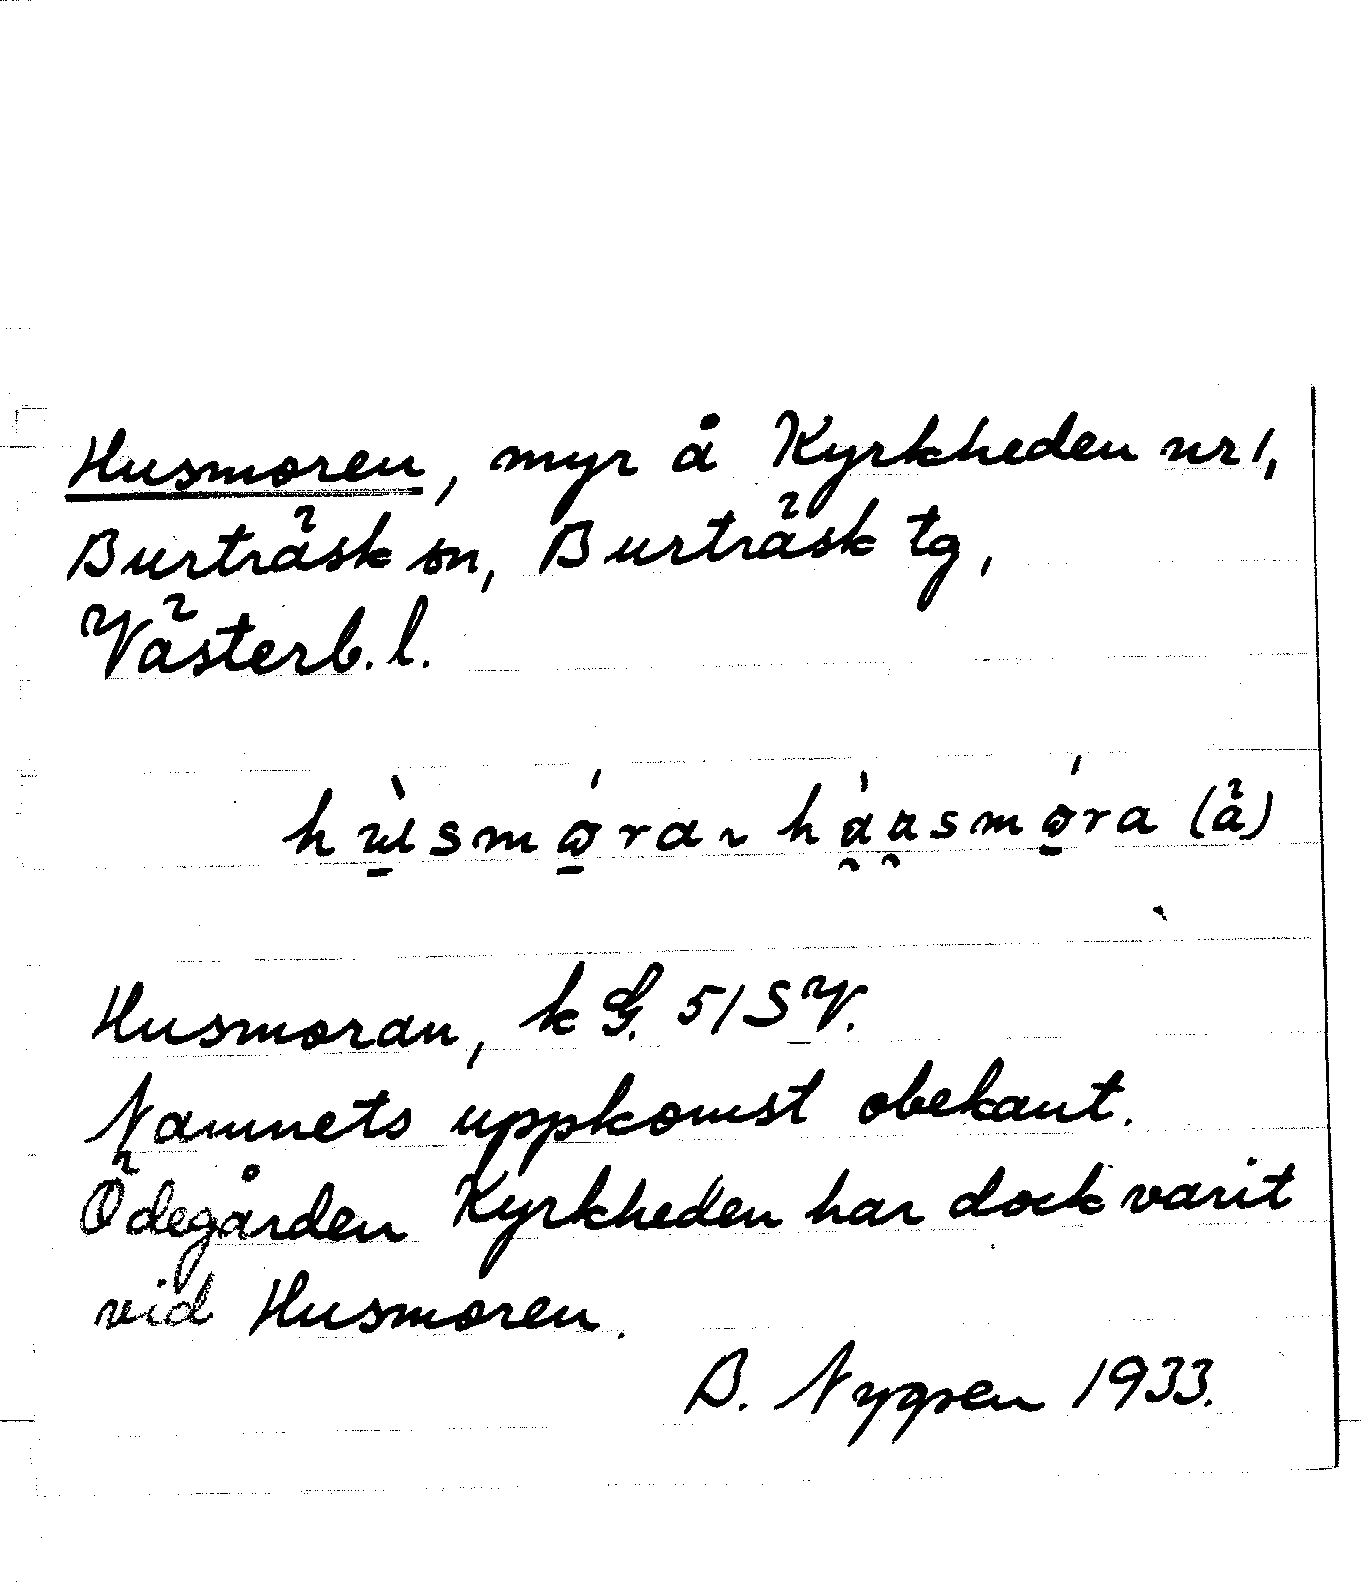 Husmoren, myr å Kyrkheden nr 1,
Burträsk sn, Burträsk tg,
Västerb. l.
(ä)
Husmoran, k G. 51 SV.
Namnets uppkomst obekant.
Ödegården Kyrkheden har dock varit
vid Husmoren.
B. Nygren 1933.